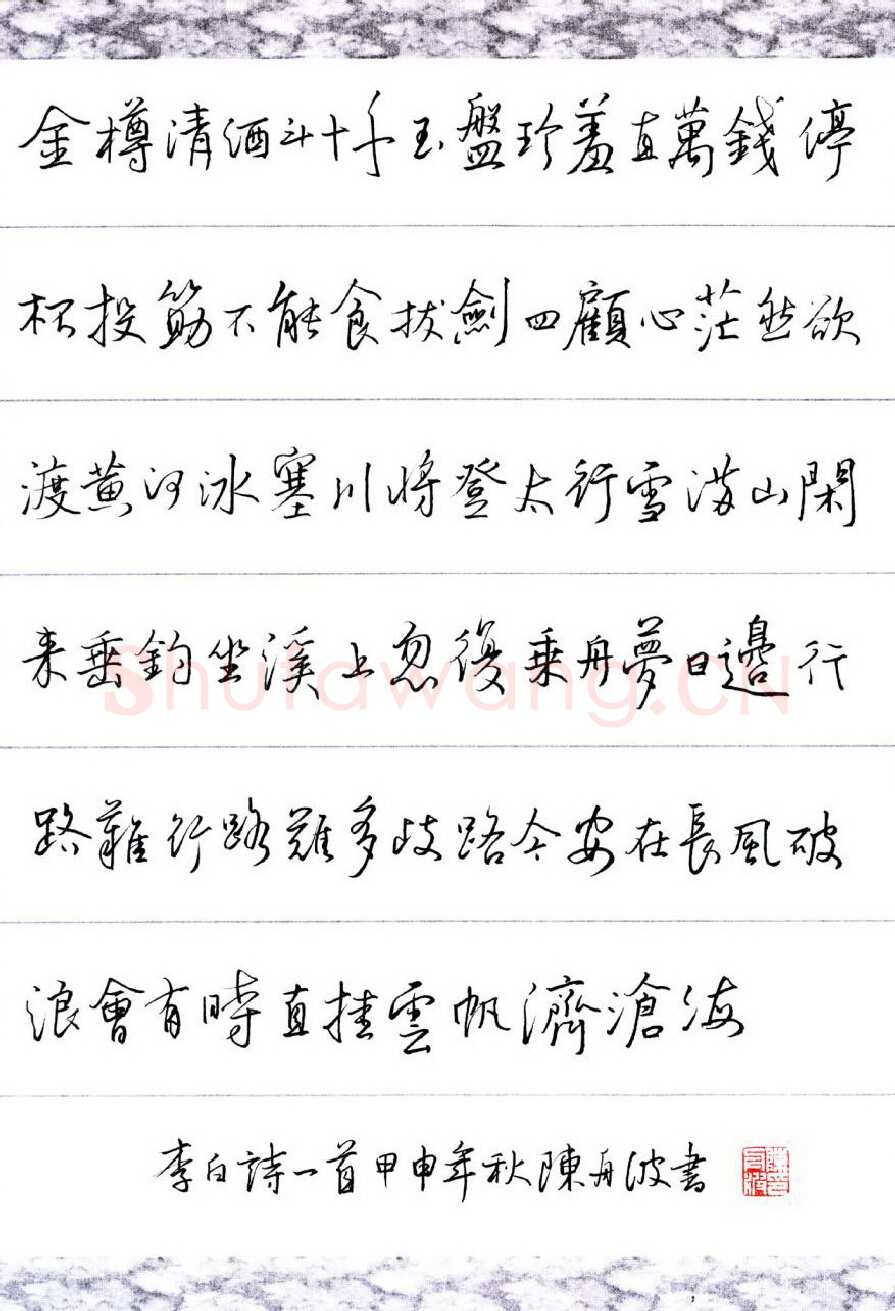 金樽清酒斗十千玉盤珍羞直萬錢停
杯投筯不能食拔劍四顧心茫然欲
渡黄河冰塞川將登太行雪滿山閑
来垂釣坐溪上忽復乘舟夢日邊行
路難行路難多歧路今安在長風破
浪會有時直挂雲帆濟滄海
李白詩一首甲申年秋陳舟波書
Shufawang.CN